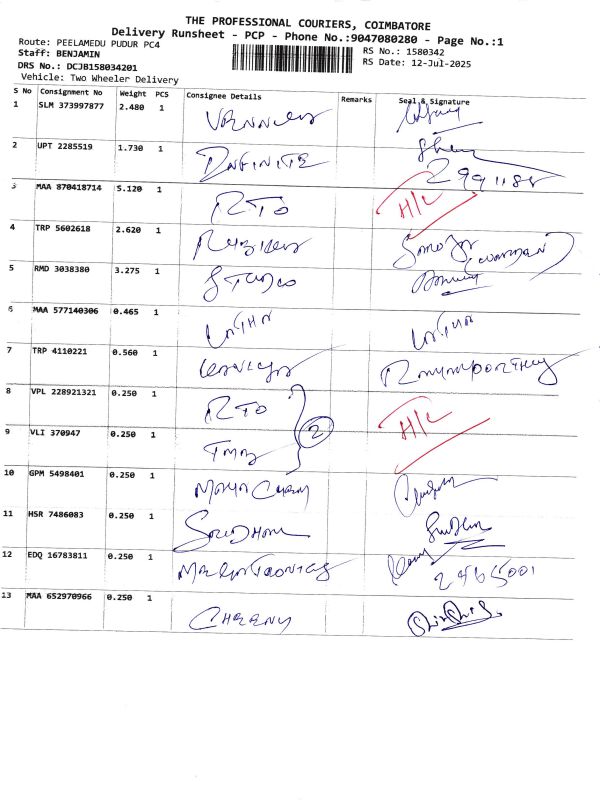 THE PROFESSIONAL COURIERS, COIMBATORE
Delivery Runsheet - PCP - Phone No.:9047080280 - Page No.:1
Route: PEELAMEDU PUDUR PC4
Staff: BENJAMIN
RS No.: 1580342
DRS No.: DCJB158034201
RS Date: 12-Jul-2025
Vehicle: Two Wheeler Delivery
S No Consignment No Weight PCS Consignee Details Remarks Seal & Signature
1 SLM 373997877 2.480 1
2 UPT 2285519 1.730 1 INFINITE
2991188
3 MAA 870418714 5.120 1 RTO H/L
4 TRP 5602618 2.620 1
5 RMD 3038380 3.275 1 STUDIO
6 MAA 577140306 0.465 1 LATHA LATHA
7 TRP 4110221 0.560 1
8 VPL 228921321 0.250 1 RTO H/L
2
9 VLI 370947 0.250 1 TMB
10 GPM 5498401 0.250 1
11 HSR 7486083 0.250 1
12 EDQ 16783811 0.250 1 2465001
13 MAA 652970966 0.250 1